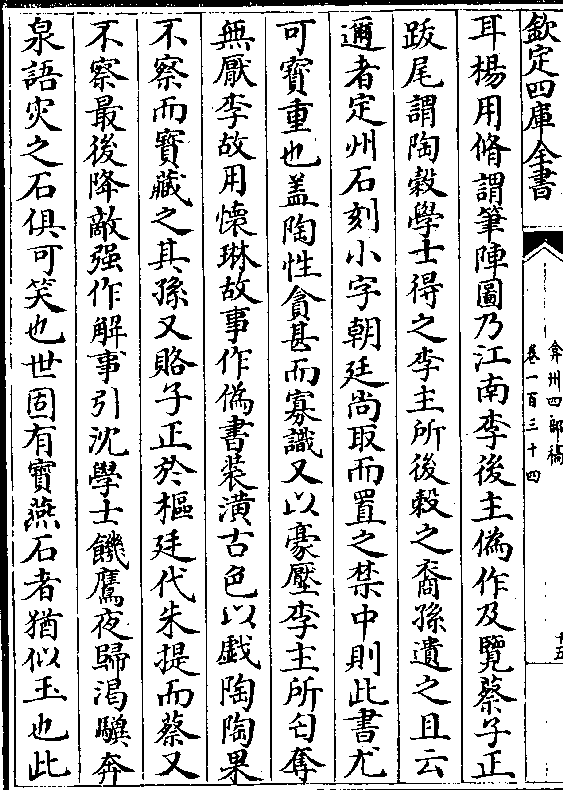 欽定四庫全書
弇州四部稿
卷一百三十四
十五
耳楊用脩謂筆陣圖乃江南李後主偽作及覽蔡子正
跋尾謂陶穀學士得之李主所後穀之裔孫遺之且云
邇者定州石刻小字朝廷尚取而置之禁中則此書尤
可寳重也盖陶性貪甚而寡識又以豪壓李主所匄奪
無厭李故用懷琳故事作偽書装潢古色以戯陶陶果
不察而寳藏之其孫又賂子正於樞廷代朱提而蔡又
不察最後降敵强作解事引沈學士饑鷹夜歸渴驥奔
泉語灾之石俱可笑也世固有寳燕石者猶似玉也此